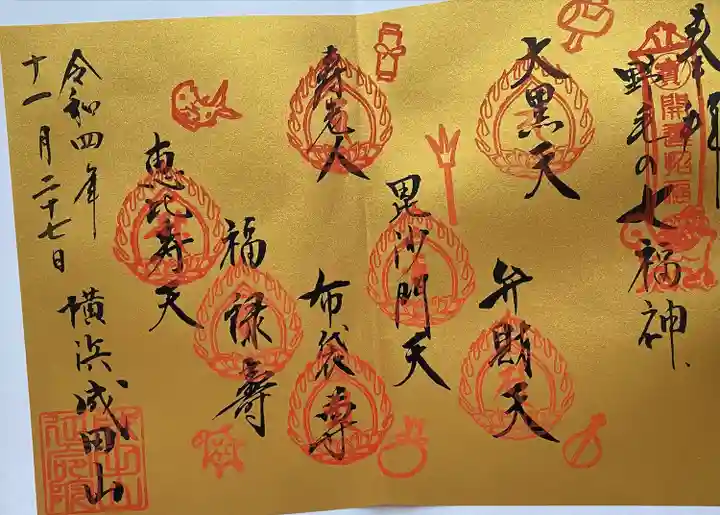 奉拝
野毛の七福神
大黒天
弁財天
毘沙門天
寿老人
布袋尊
福禄寿
恵比寿天
令和四年
十一月二十七日
横浜成田山